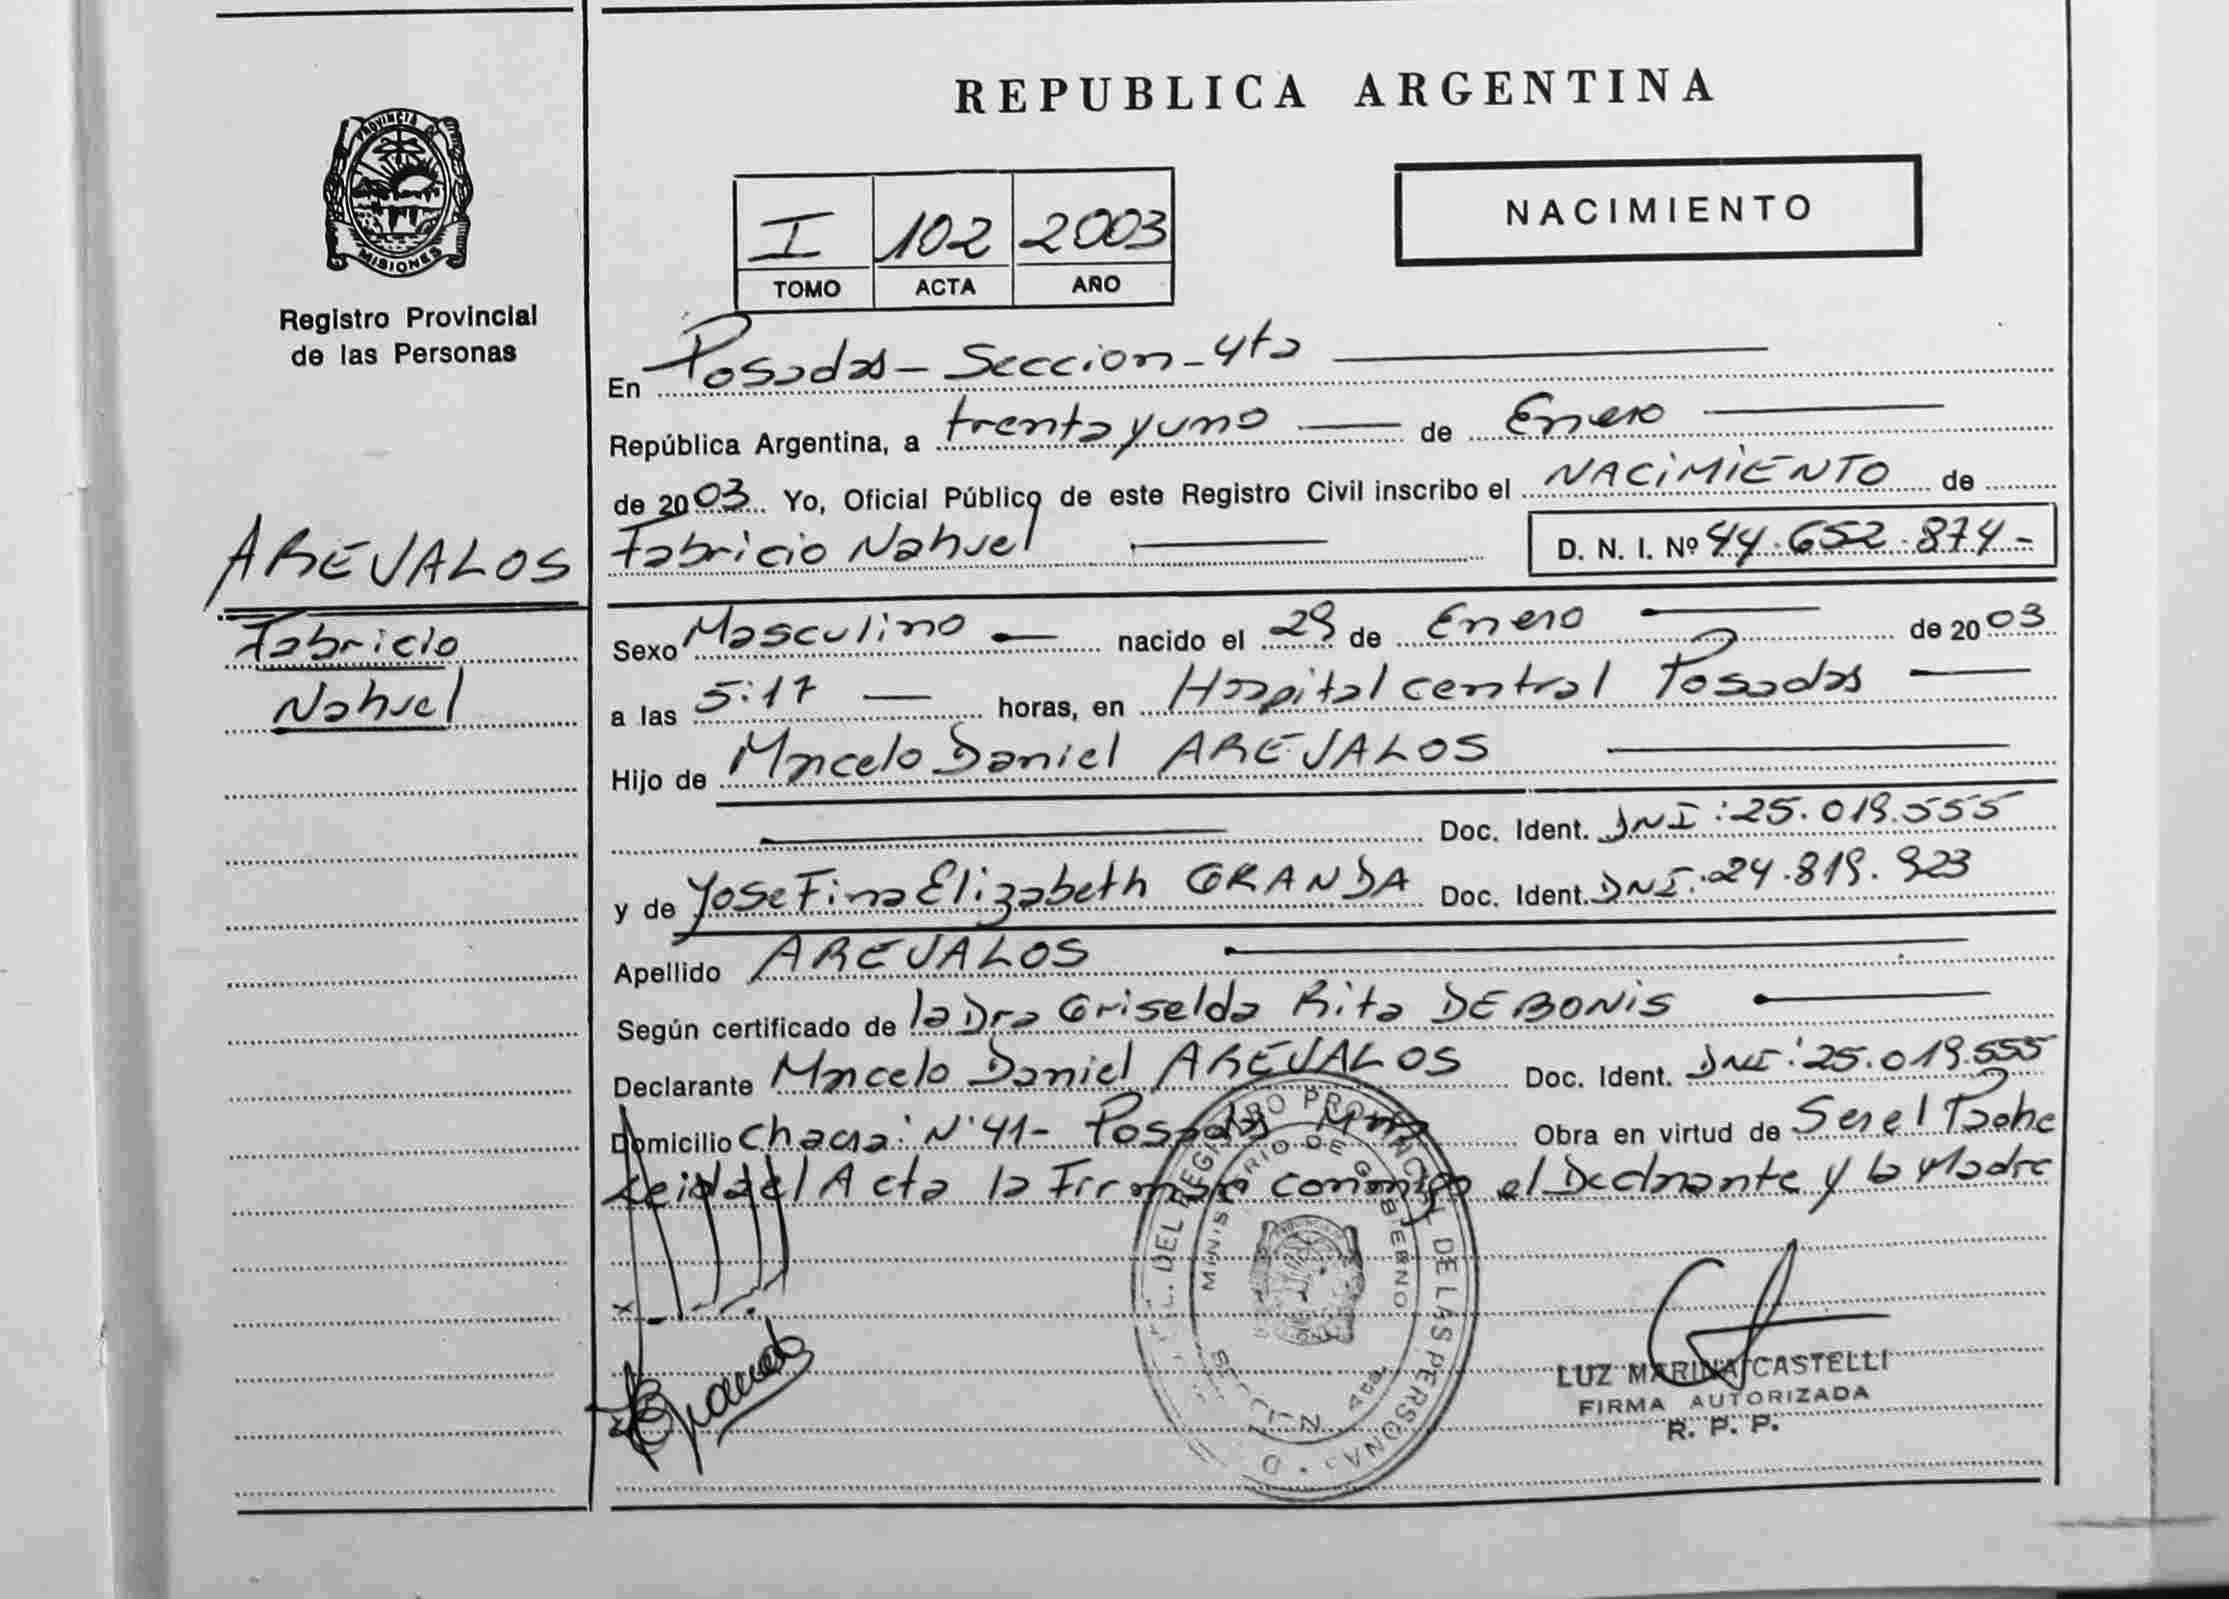 REPUBLICA ARGENTINA
PROVINCIA DE
MISIONES
Registro Provincial
de las Personas
NACIMIENTO
I 102 2003
TOMO ACTA AÑO
En Posadas - Seccion - 4ta
República Argentina, a trenta y uno de Enero
de 2003 Yo, Oficial Público de este Registro Civil inscribo el NACIMIENTO de
Fabricio Nahuel D. N. I. Nº 44.652.874-
AREVALOS
Fabricio
Nahuel
Sexo Masculino nacido el 29 de Enero de 2003
a las 5:17 horas, en Hospital central Posadas
Hijo de Marcelo Daniel AREVALOS
Doc. Ident. DNI: 25.019.555
y de Josefina Elizabeth GRANDA Doc. Ident. DNI: 24.819.923
Apellido AREVALOS
Según certificado de la Dra Griselda Rita DEBONIS
Declarante Marcelo Daniel AREVALOS Doc. Ident. DNI: 25.019.555
Domicilio Chacra: N° 41 - Posadas Mnes Obra en virtud de Ser el Padre
Leida el Acta la Firman conmigo el Declarante y la Madre
DEL REGISTRO PROVINCIAL DE LAS PERSONAS
MINISTERIO DE GOBIERNO
4ta
LUZ MARINA CASTELLI
FIRMA AUTORIZADA
R. P. P.